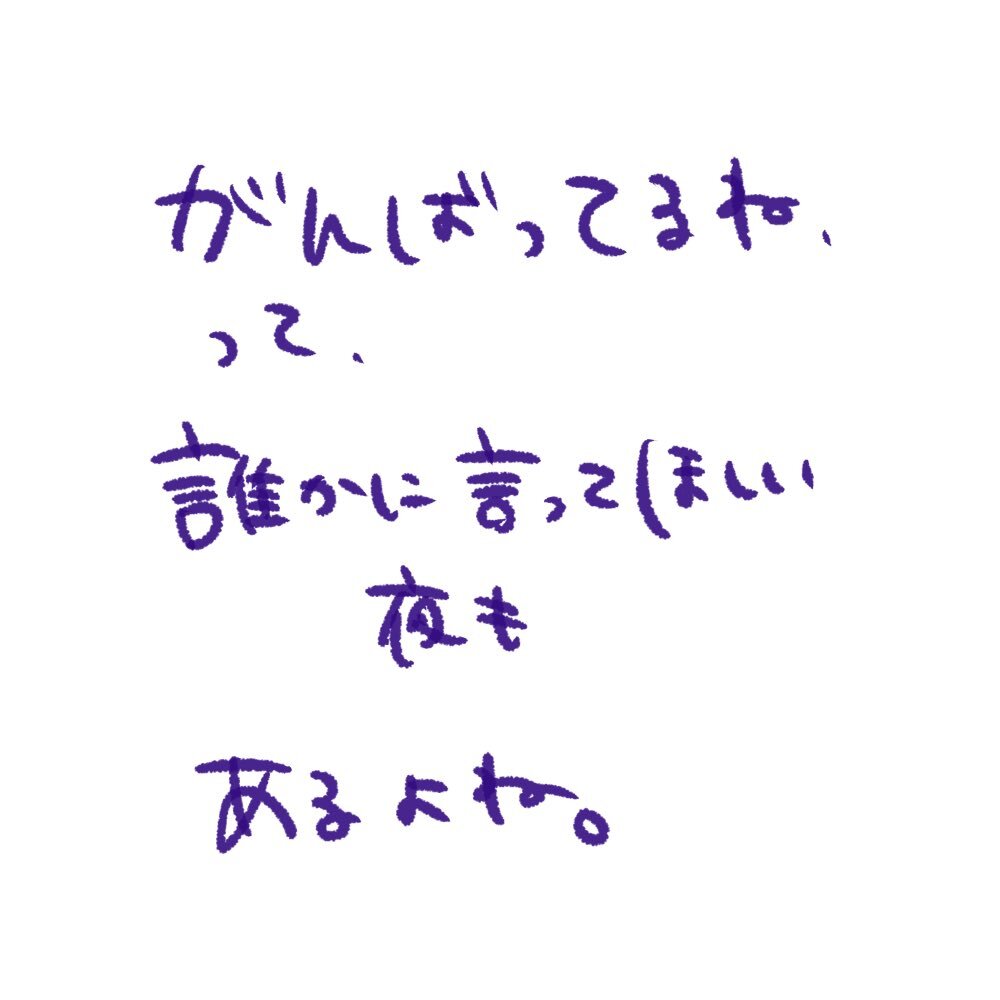 がんばってるね、
って、
誰かに言ってほしい
夜も
あるよね。